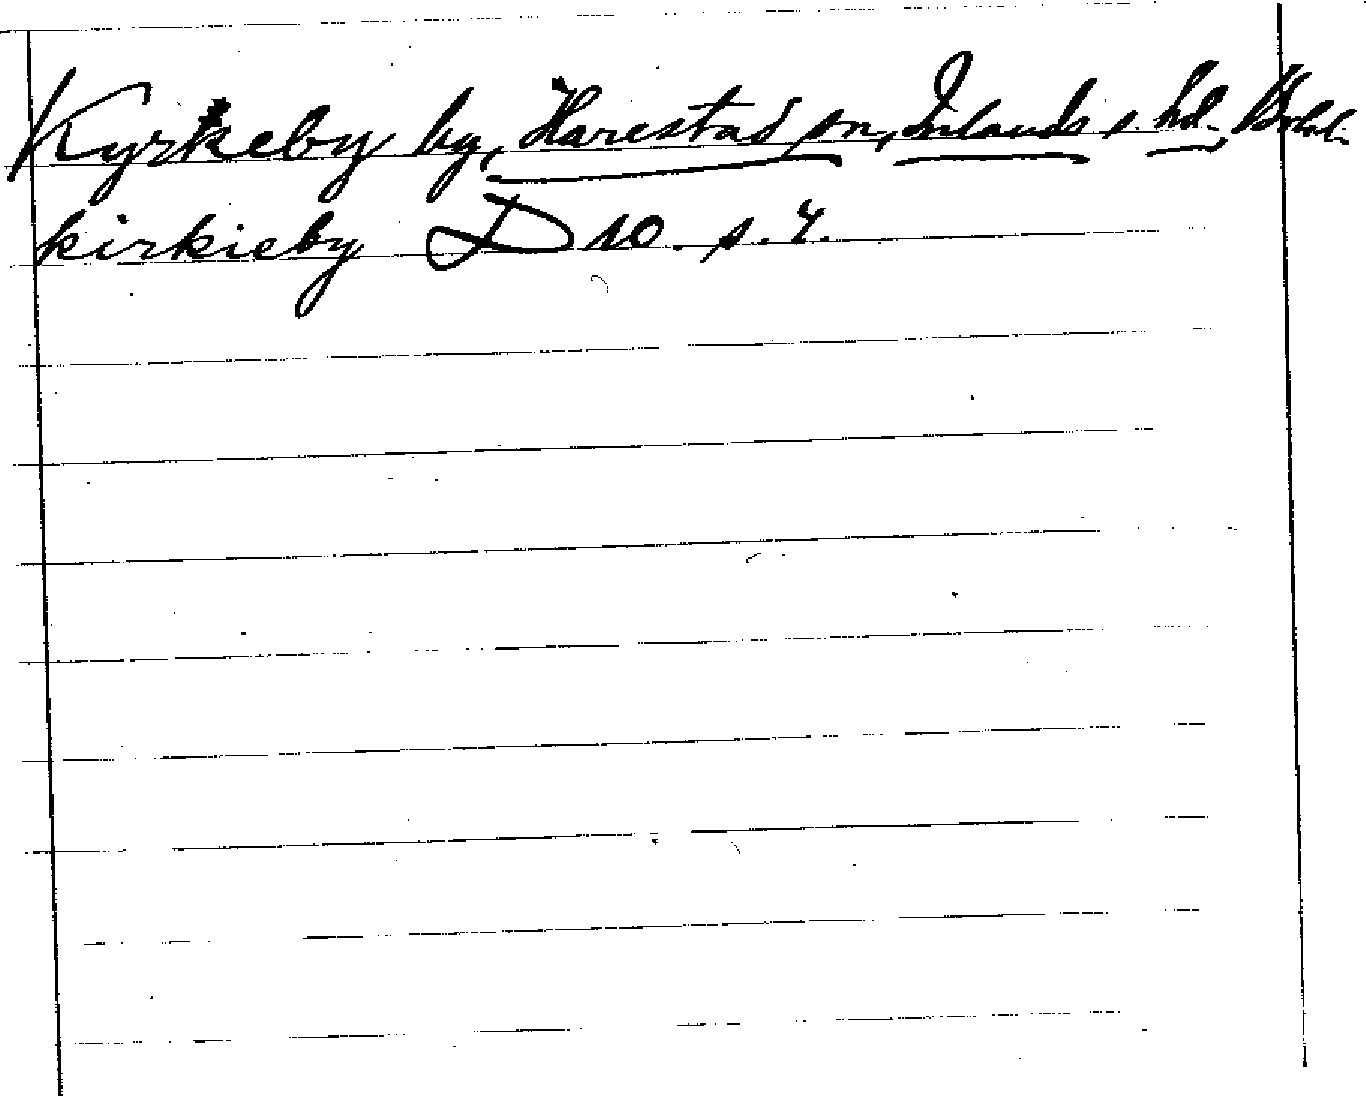 Kyrkeby by, Harestad sn, Inlands s. hd. Bohl.
kirkieby D 10. s. 7.